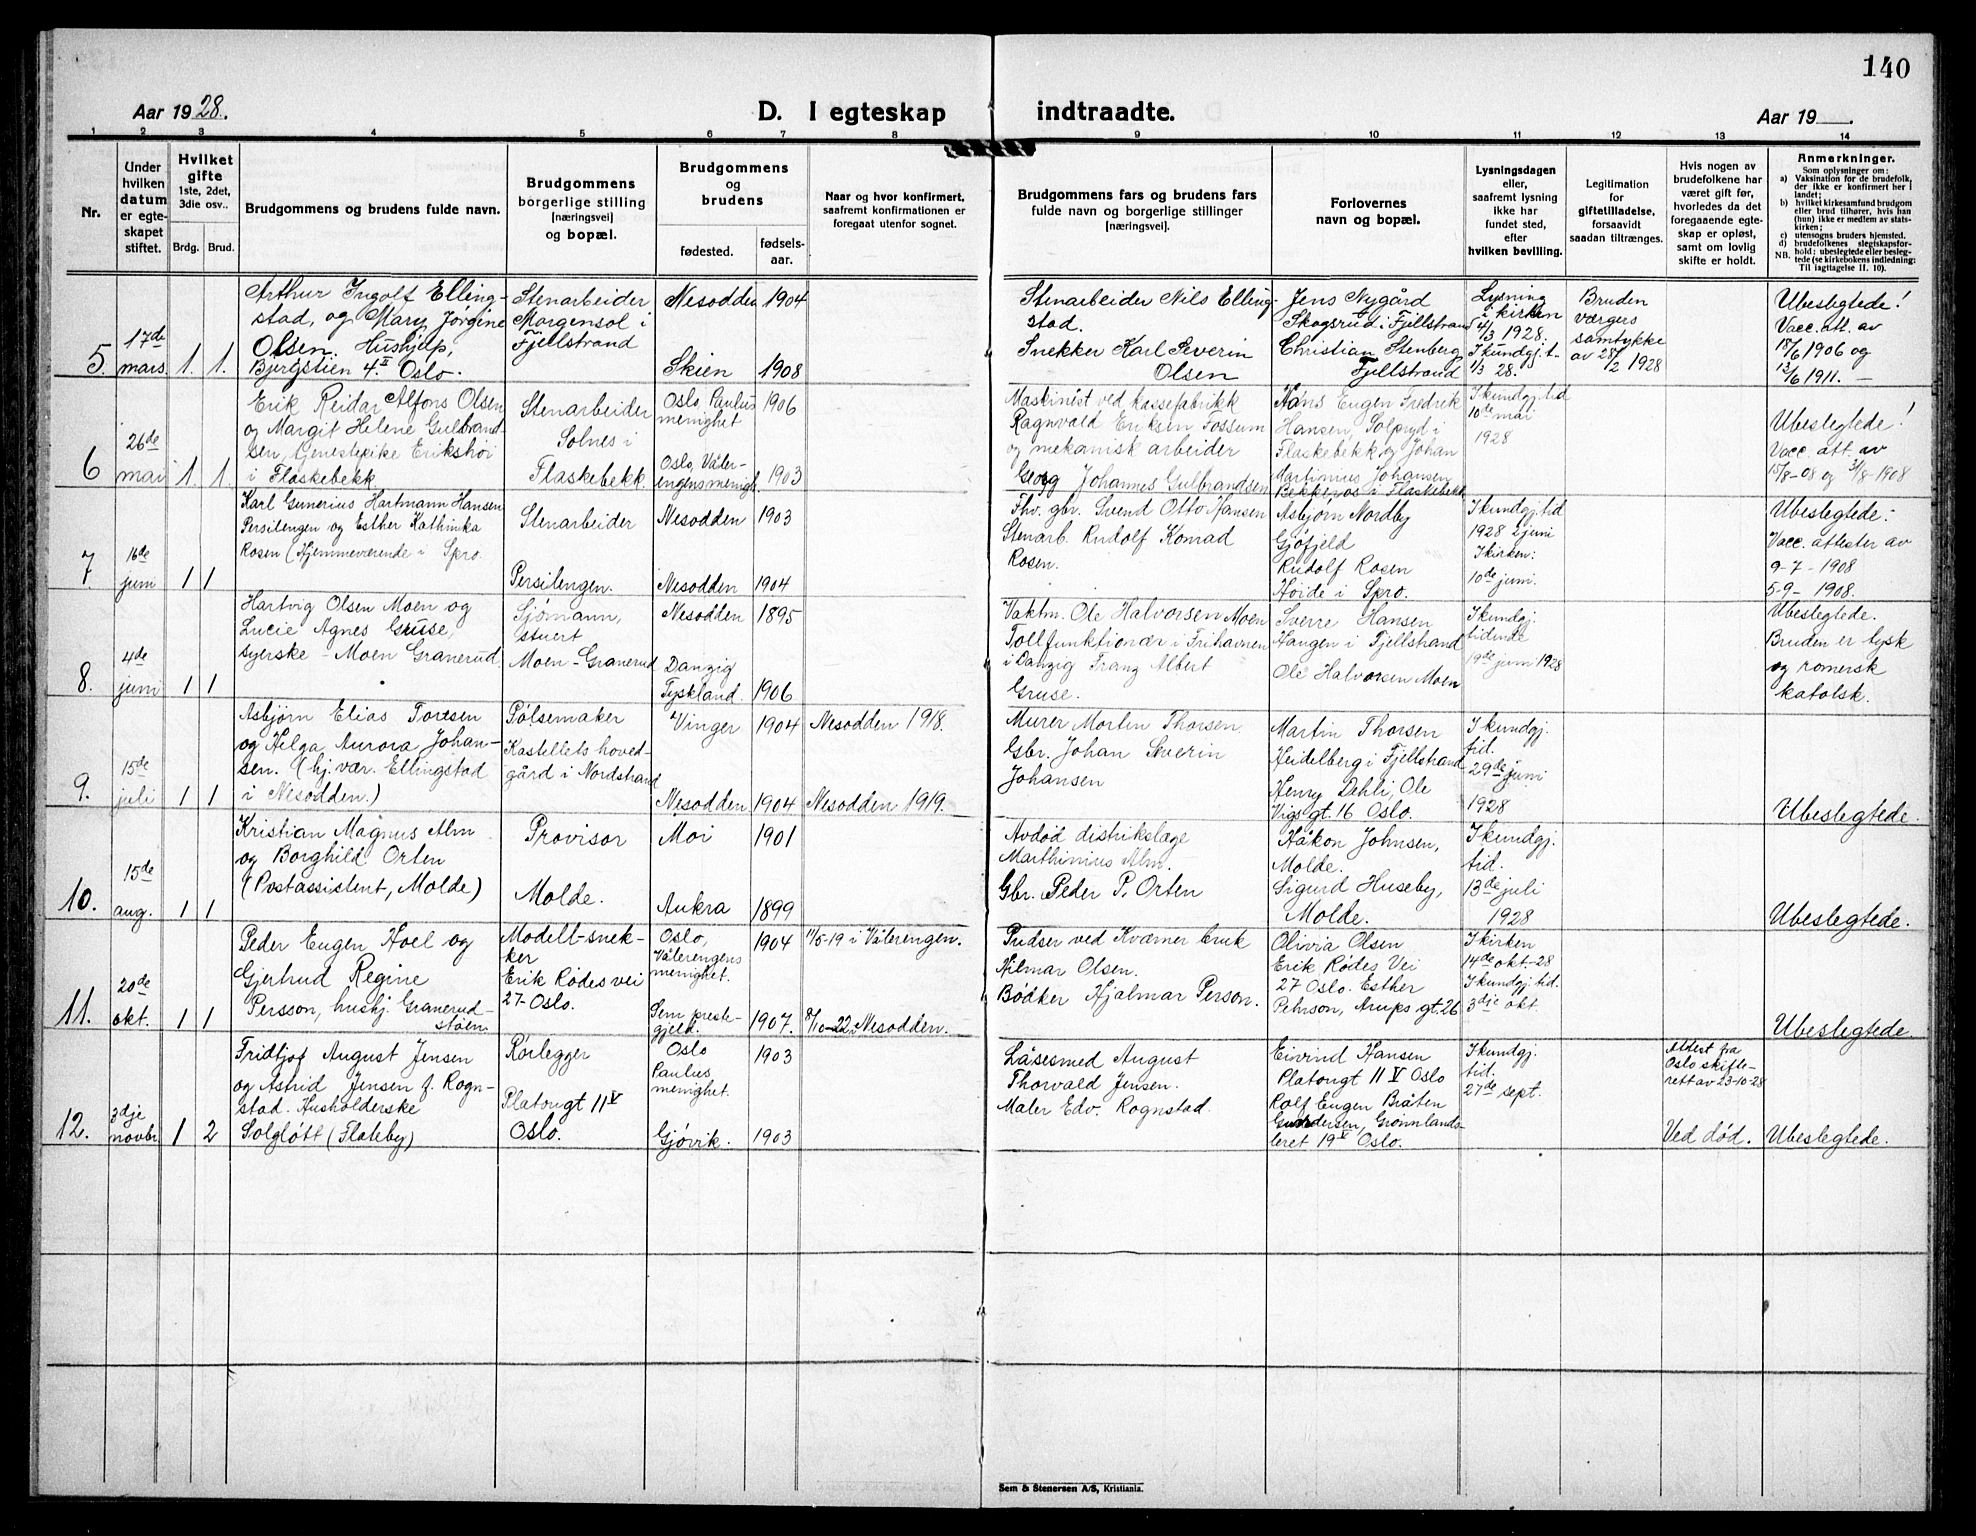 140
Aar 1928.
D. I egteskap indtraadte.
Aar 19
1 2 3 4 5 6 7 8 9 10 11 12 13 14
Nr.
Under
hvilken
datum
er egte-
skapet
stiftet.
Hvilket
gifte
1ste, 2det,
3die osv..
Brdg. Brud.
Brudgommens og brudens fulde navn.
Brudgommens
borgerlige stilling
[næringsvei]
og bopæl.
Brudgommens
og
brudens
fødested.
fødsels-
aar.
Naar og hvor konfirmert,
saafremt konfirmationen er
foregaat utenfor sognet.
Brudgommens fars og brudens fars
fulde navn og borgerlige stillinger
[næringsvei].
Forlovernes
navn og bopæl.
Lysningsdagen
eller,
saafremt lysning
ikke har
fundet sted,
efter
hvilken bevilling.
Legitimation
for
giftetilladelse,
forsaavidt
saadan tiltrænges.
Hvis nogen av
brudefolkene har
været gift før,
hvorledes da det
foregaaende egte-
skap er opløst,
samt om lovlig
skifte er holdt.
Anmerkninger.
Som oplysninger om:
a) Vaksination for de brudefolk,
der ikke er konfirmert her i
landet;
b) hvilket kirkesamfund brudgom
eller brud tilhører, hvis han
(hun) ikke er medlem av stats-
kirken;
c) utensogns bruders hjemsted.
d) brudefolkenes slegtskapsfor-
hold: ubeslegtede eller besleg-
NB. tede (se kirkebokens indledning:
Til iagttagelse II. 10).
5.
17de
mars
1. 1.
Arthur Ingolf Elling-
stad, og Mary Jørgine
Olsen. Hushjelp,
Bjergstien 4.II Oslo.
Stenarbeider
Morgensol i
Fjellstrand
Nesodden 1904
Skien 1908
Stenarbeider Nils Elling-
stad.
Snekker Karl Severin
Olsen
Jens Nygård
Skogsrud i Fjellstrand
Christian Stenberg
Fjellstrand
Lysning
i kirken
4/3 1928.
I kundgj. t.
1/3 28.
Bruden
værgers
samtykke
av 28/2 1928
Ubeslegtede!
Vacc. att. av
18/6 1906 og
13/6 1911. —
6
26de
mai
1. 1.
Erik Reidar Alfons Olsen
og Margit Helene Gulbrand-
sen,
i Flaskebekk.
Stenarbeider
Solnes i
Flaskebekk.
Oslo, Paulus
menighet
1906
Oslo, Våler-
engens menigh.
1903
Maskinist ved kassefabrikk
Ragnvald Eriksen Fossum
og mekanisk arbeider
Georg Johannes Gulbrandsen
Hans Eugen Fredrik
Hansen, Solbryd i
Flaskebekk og Johan
Martinius Johansen
i Flaskebekk
I kundgj. tid
10de mai
1928
Ubeslegtede!
Vacc. att. av
15/8-08 og 31/8-1908
7
16de
juni
1 1
Karl Gunerius Hartmann Hansen
Persilengen og Esther Kathinka
Rosen (Hjemmeværende i Spro.
Stenarbeider
Persilengen.
Nesodden 1903
Nesodden 1904
Fhv. gbr. Svend Otto Hansen
Stenarb. Rudolf Konrad
Rosen.
Asbjørn Nordby
Gjøfjeld
Rudolf Rosen
Høide i Spro.
I kundgj. tid
1928 2 juni
I kirken:
10de juni.
Ubeslegtede:
Vacc. attester av
9-7-1908
5-9-1908.
8.
4de
juni
1 1
Hartvig Olsen Moen og
Lucie Agnes Gruse,
syerske - Moen Granerud
Sjømann,
stuert
Moen-Granerud
Nesodden 1895
Danzig
Tyskland. 1906
Vaktm. Ole Halvorsen Moen
Tollfunktionær i Frihavnen
i Danzig Franz Albert
Gruse.
Sverre Hansen
Haugen i Fjellstrand
Ole Halvorsen Moen
I kundgj.
tidende
19de juni 1928
Ubeslegtede.
Bruden er tysk
og romersk
katolsk.
9.
15de
juli
1 1
Asbjørn Elias Toresen
og Helga Aurora Johan-
sen. (hj. vær. Ellingstad
i Nesodden.)
Pølsemaker
Kastellets hoved-
gård i Nordstrand
Vinger 1904 Nesodden 1918.
Nesodden 1904 Nesodden 1919.
Murer Morten Thorsen
Gbr. Johan Severin
Johansen
Martin Thorsen
Heidelberg i Fjellstrand
Henry Dehli, Ole
Vigs gt. 16 Oslo.
I kundgj.
tid.
29de juni
1928
Ubeslegtede.
10.
15de
aug.
1 1
Kristian Magnus Alm
og Borghild Orten
(Postassistent, Molde)
Provisor
Molde.
Moi 1901
Aukra 1899
Avdød distrikslæge
Marthinius Alm.
Gbr. Peder P. Orten
Håkon Johnsen,
Molde.
Sigurd Huseby,
Molde.
I kundgj.
tid.
13de juli
1928
Ubeslegtede.
11.
20de
okt.
1 1
Peder Eugen Hoel og
Gjertrud Regine
Persson, hushj. Granerud-
støen
Modell-snek-
ker
Erik Rødes vei
27-Oslo.
Oslo,
Vålerengens
menighet.
1904 11/5-19 i Vålerengen.
Sem preste-
gjeld.
1907. 8/10-22 Nesodden.
Pudser ved Kværner bruk
Hilmar Olsen.
Bødker Hjalmar Person.
Olivia Olsen
Erik Rødes Vei
27 Oslo. Esther
Pehrson, Arups gt. 26
I kirken
14de okt.-28
I kundgj. tid.
3dje okt.
Ubeslegtede.
12.
3dje
novbr
1 2
Fridtjof August Jensen
og Astrid Jensen f. Rogn-
stad. Husholderske
Solgløtt (Flateby)
Rørlegger
Platougt 11 V
Oslo.
Oslo
Paulus
menighet.
1903
Gjøvik. 1903
Låsesmed August
Thorvald Jensen.
Maler Edv. Rognstad.
Eivind Hansen
Platougt 11 V Oslo
Rolf Eugen Bråten
Gundersen, Grønnlands-
leret 19 V Oslo.
I kundgj.
tid.
27de sept.
Attest fra
Oslo skifte-
rett av 23-10-28
Ved død.
Ubeslegtede.
Sem & Stenersen A/S, Kristiania.